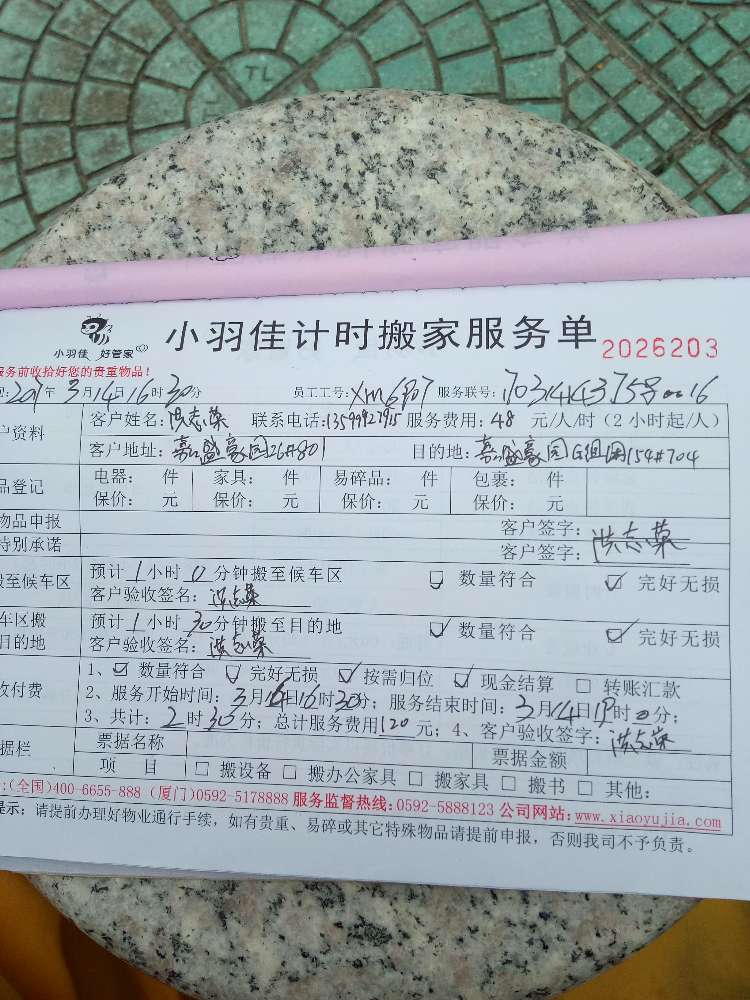 TL
小羽佳 好管家
小羽佳计时搬家服务单
2026203
服务前收拾好您的贵重物品!
年3月14日16时30分 员工工号: 服务联号:
户资料 客户姓名:洪志荣 联系电话: 服务费用:48 元/人/时(2小时起/人)
客户地址:嘉盛豪园26#801 目的地:嘉盛豪园G组团154#704
品登记 电器: 件 家具: 件 易碎品: 件 包裹: 件
保价: 元 保价: 元 保价: 元 保价: 元
物品申报 客户签字:洪志荣
特别承诺 客户签字:
搬至候车区 预计1小时0分钟搬至候车区 数量符合 完好无损
客户验收签名:洪志荣
车区搬 预计1小时30分钟搬至目的地 数量符合 完好无损
目的地 客户验收签名:洪志荣
收付费 1、 数量符合 完好无损 按需归位 现金结算 转账汇款
2、服务开始时间:3月14日16时30分; 服务结束时间:3月14日19时0分;
3、共计:2时30分; 总计服务费用120元; 4、客户验收签字:洪志荣
据栏 票据名称 票据金额
项 目 搬设备 搬办公家具 搬家具 搬书 其他:
:(全国)400-6655-888 (厦门)0592-5178888 服务监督热线:0592-5888123 公司网站:www.xiaoyujia.com
提示:请提前办理好物业通行手续,如有贵重、易碎或其它特殊物品请提前申报,否则我司不予负责。